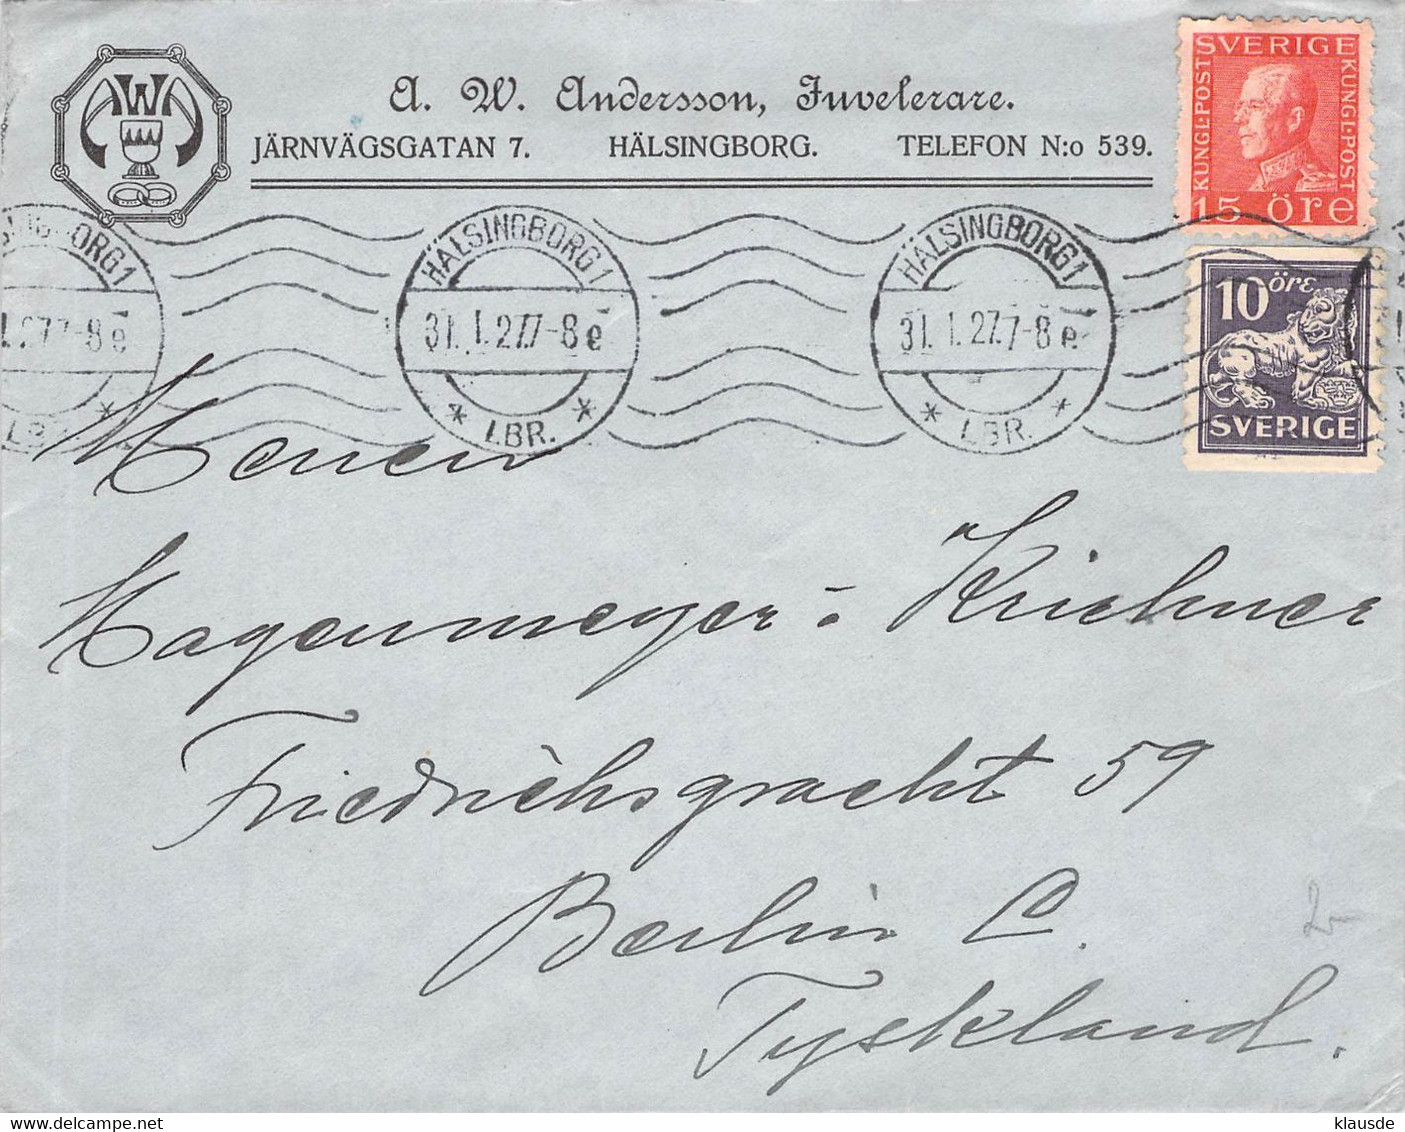 AWA
A. W. Andersson, Juvelerare.
JÄRNVÄGSGATAN 7. HÄLSINGBORG. TELEFON N:o 539.
SVERIGE
KUNGL-POST
KUNGL-POST
15 öre
10 öre
SVERIGE
HÄLSINGBORG 1
31.1.27.7-8 e
* LBR. *
HÄLSINGBORG 1
31.1.27.7-8 e
* LBR. *
ORG 1
1.27.7-8 e
LB *
Herren
Hagenmeyer - Kirchner
Friedrichsgracht 59
Berlin C.
Tyskland.
2
klausde